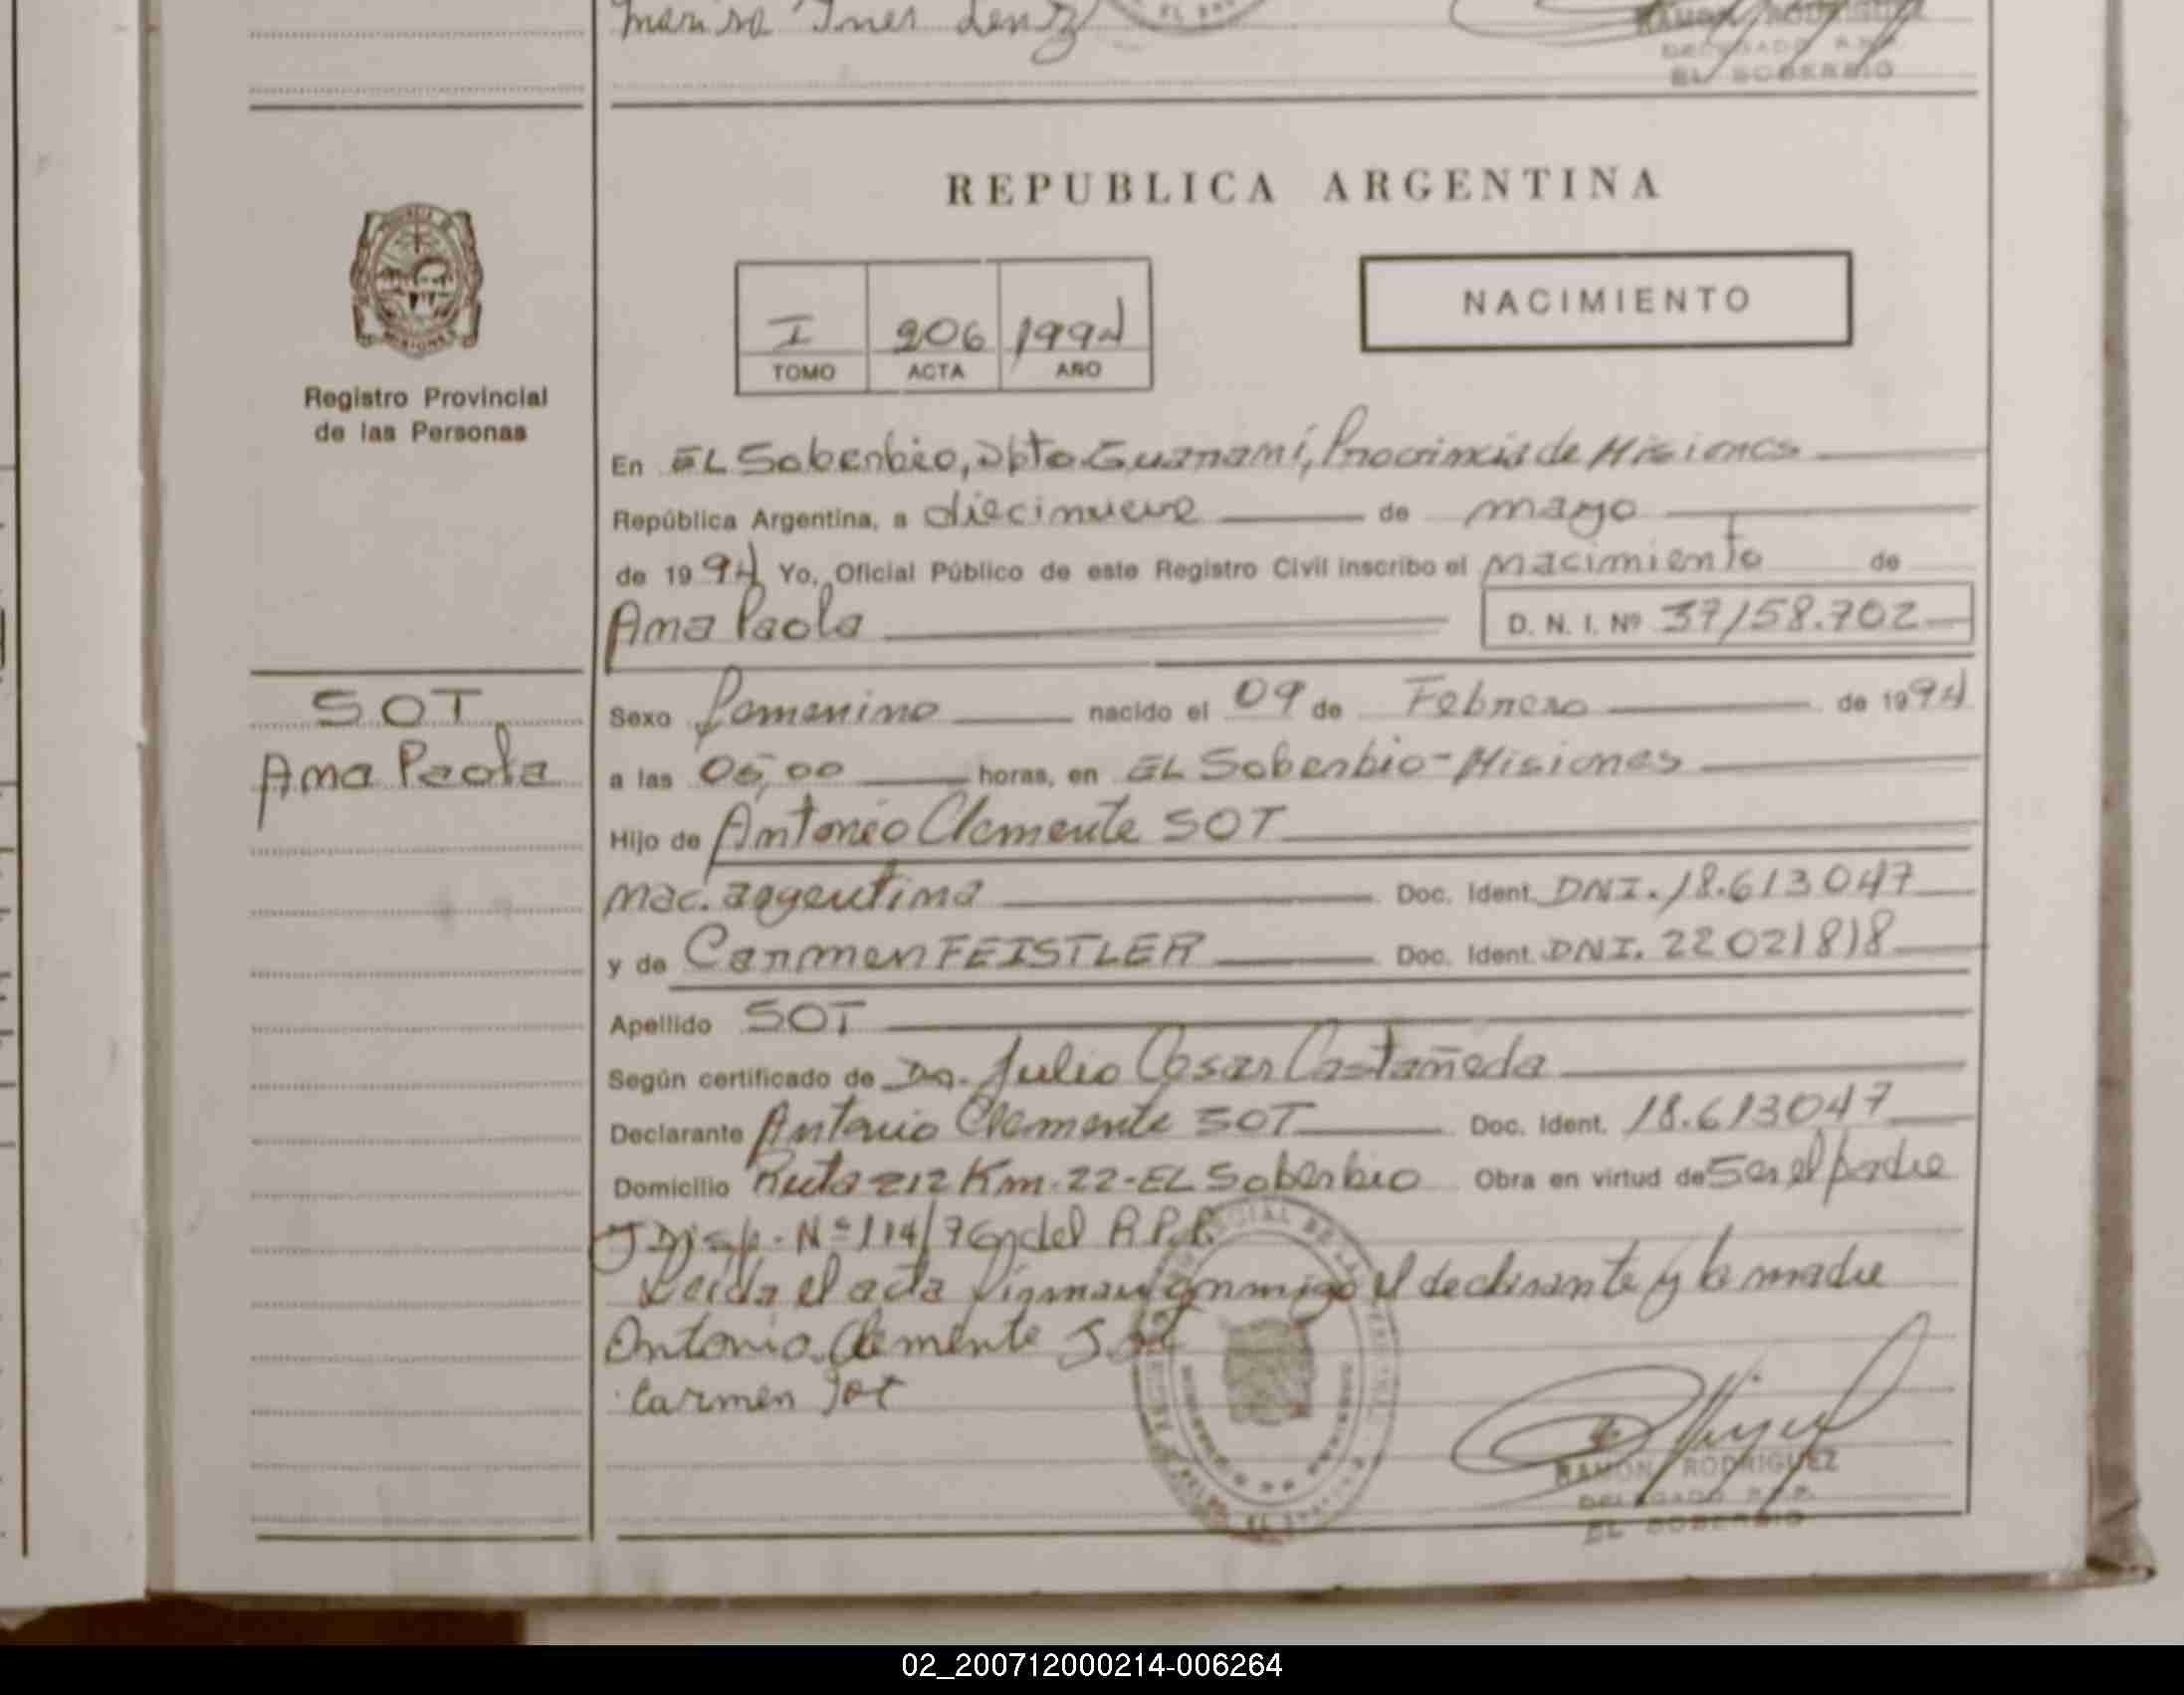 Marisa Ines Lenz
RAMON RODRIGUEZ
DELEGADO R.P.P.
EL SOBERBIO
REPUBLICA ARGENTINA
NACIMIENTO
I 206 1994
TOMO ACTA AÑO
Registro Provincial
de las Personas
En EL Soberbio, Dpto Guaraní, Provincia de Misiones
República Argentina, a diecinueve de mayo
de 1994 Yo, Oficial Público de este Registro Civil inscribo el nacimiento de
Ana Paola D. N. I. Nº 37158.702
SOT
Ana Paola
Sexo Femenino nacido el 09 de Febrero de 1994
a las 05,00 horas, en EL Soberbio-Misiones
Hijo de Antonio Clemente SOT
nac. argentina Doc. Ident. DNI. 18.613047
y de Carmen FEISTLER Doc. Ident. DNI. 22021818
Apellido SOT
Según certificado de Dr. Julio Cesar Castañeda
Declarante Antonio Clemente SOT Doc. Ident. 18.613047
Domicilio Ruta 212 Km. 22-EL Soberbio Obra en virtud de Ser el padre
y Disp. Nº 114/76 del R.P.P.
Leída el acta firman conmigo el declarante y la madre
Antonio Clemente Sot
Carmen Sot
RAMON RODRIGUEZ
DELEGADO R.P.P.
EL SOBERBIO
02_200712000214-006264